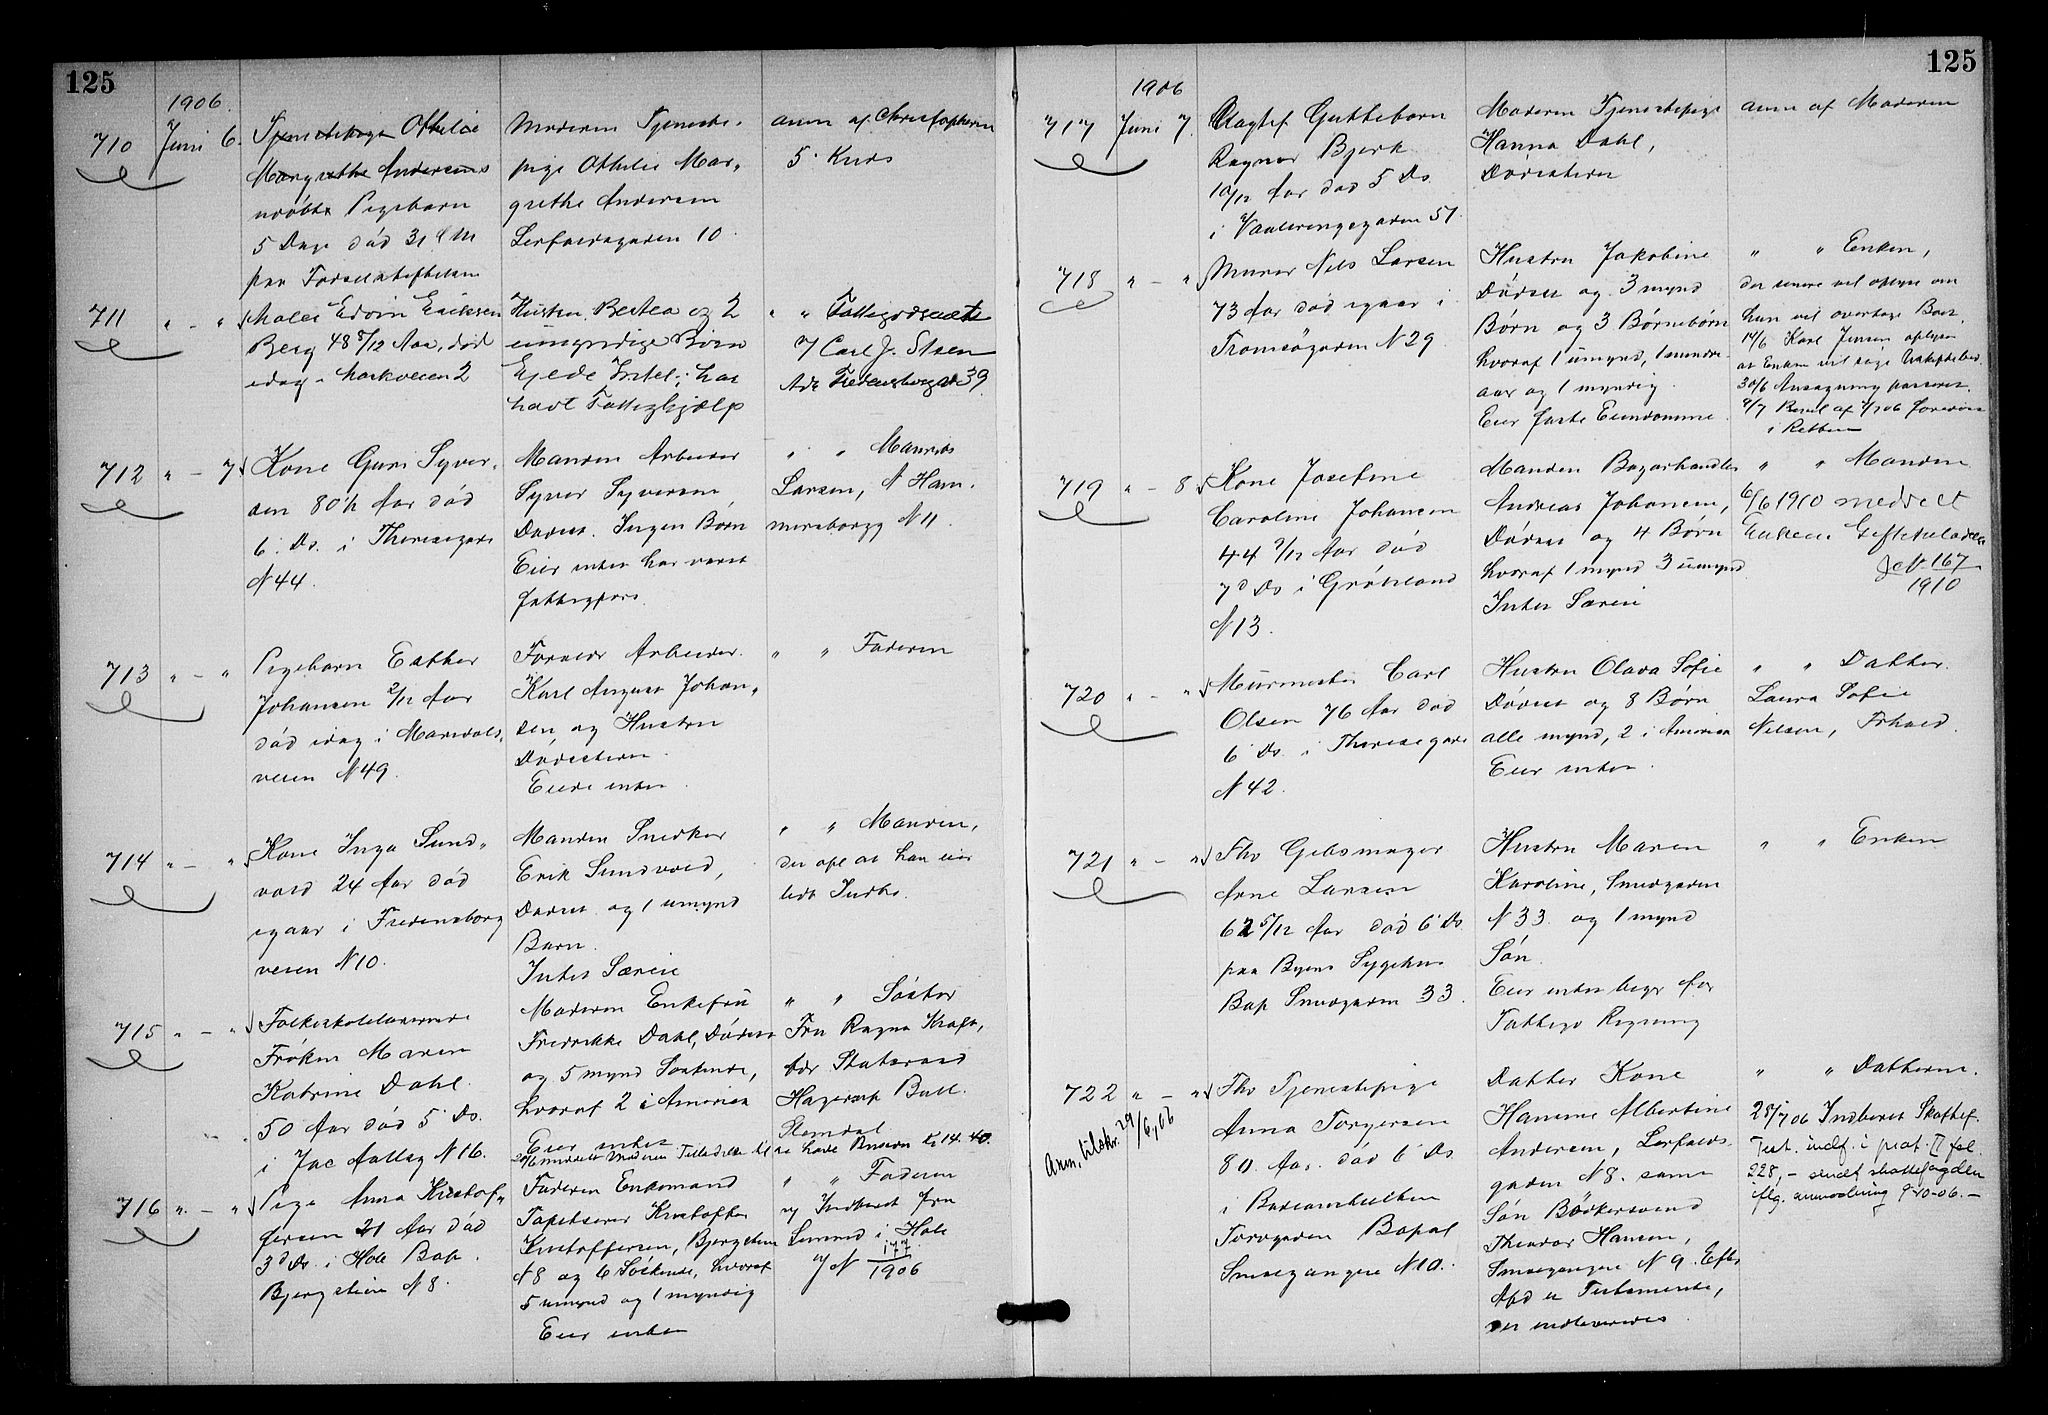 125
1906.
710
Juni 6.
Tjenestepige Othilie
Margrethe Andersens
udöbte Pigebarn
5 Dage död 31 f M
paa Fødselsstiftelsen
Moderen Tjeneste-
pige Othilie Mar-
grethe Andersen
Lerfaldsgaden 10.
anm af Christophersen
5. Kreds
711
" - "
Maler Edvin Eriksen
Berg 48 8/12 Aar, död
idag i Markveien 2
Hustru Bertea og 2
umyndige Börn
Ejede Intet; har
havt Fattighjælp
" " Fattigvæsenet
v/ Carl J. Steen
Adr Fredensborgv 39.
712
" - 7
Kone Guri Syver-
sen 80 1/2 Aar död
6. Ds. i Theresegade
N 44.
Manden Arbeider
Syver Syversen,
Dødsst. Ingen Børn
Eier intet har været
fattigfors.
" " Mannds
Larsen, N Ham-
mersborgg N 11.
713
" - "
Pigebarn Esther
Johansen 2/12 Aar
död idag i Maridals-
veien N 49.
Forældr Arbeider
Karl August Johan-
sen og Hustru
Dödsstedet.
Eiede intet.
" " Faderen
714
" - "
Kone Inga Sund-
vold 24 Aar död
igaar i Fredensborg
veien N 10.
Manden Snedker
Erik Sundvold,
Dødsst. og 1 umynd
Barn.
Intet Særeie
" " Manden,
der opl at han var
ledt Indbo.
715
" - "
Folkeskolelærerinde
Frøken Maren
Katrine Dahl.
50 Aar död 5 Ds.
i Jac Aallsg N 16.
Moderen Enkefru
Fredrikke Dahl, Dødsst
og 5 mynd Søskende,
hvoraf 2 i Amerika
Eier intet
" " Söster
Fru Ragna Kraft,
Adr Statsraad
Hagerup Bull
Slemdal
716
" - "
Pige Anna Kristof-
fersen 21 Aar död
3 Ds. i Hole Bop.
Bjergstien N 8.
Faderen Enkemand
Tapetserer Kristoffer
Kristoffersen, Bjergstien
N 8 og 6 Söskende, hvoraf
5 umynd og 1 myndig
Eier intet
" " Faderen
og Indberet fra
Lensmd i Hole
J N 177
1906
125
1906
717
Juni 7.
Uægtef Guttebarn
Ragnar Bjerk
10/12 Aar död 5 Ds.
i Vaalerengagaden 51.
Moderen Tjenestepige
Hanna Dahl,
Dødsstedet
anm af Moderen
718
" - "
Murer Nils Larsen
73 Aar död igaar i
Tromsøgaden N 29.
Hustru Jakobine
Dødsst og 3 mynd
Børn og 3 Børnebörn
hvoraf 1 umynd, 1 mindre-
aar og 1 myndig.
Eier faste Eiendomme.
" " Enken,
der senere vil oplyse om
hun vil overtage Boet.
14/6 Karl Jensen oplyser
at Enken vil søge Uskiftetbev.
30/6 Ansøgning passeret.
9/7 Bevil af 4/7 06 forevist
i Retten
719
" - 8
Kone Josefine
Caroline Johansen
44 9/12 Aar död
7d Ds i Grønland
N 13.
Manden Bazarhandler
Andreas Johansen,
Dødsst og 4 Børn
hvoraf 1 mynd 3 umynd
Intet Særeie
" " Manden
6/6 1910 meddelt
Enkem. Giftetilladelse
JN. 167
1910
720
" - "
Murmester Carl
Olsen 76 Aar död
6 Ds. i Theresegade
N 42.
Hustru Olava Sofie
Dødsst og 8 Børn
alle mynd, 2 i Amerika
Eier intet.
" " Datter
Laura Sofie
Nilsen, Frhald.
721
" - "
Fhv Gebsmager
Arne Larsen
62 5/12 Aar död 6 Ds.
paa Byens Sygehus
Bop Smedgaden 33.
Hustru Maren
Karoline, Smedgaden
N 33. og 1 mynd
Søn.
Eier intet begr for
Fattigv Regning
" " Enken
722
" - "
Anm. tilskr. 29/6,06
Fhv Tjenestepige
Anna Torgersen
80. Aar. död 6 Ds
i Badeanstalten
Torvgaden Bopæl
Smedgangen N 10.
Datter Kone
Hanine Albertine
Andersen, Lerfalds-
gaden N 8. samt
Søn Bödkersvend
Theodor Hansen,
Smedgangen N 9. Efter
Afd er Testamente,
der indleveredes
" " Datteren.
28/7 06 Indberet Skattef.
Test. indf. i prot. II fol.
228, - sendt skattefogden
flg. anmodning 9-10-06. -